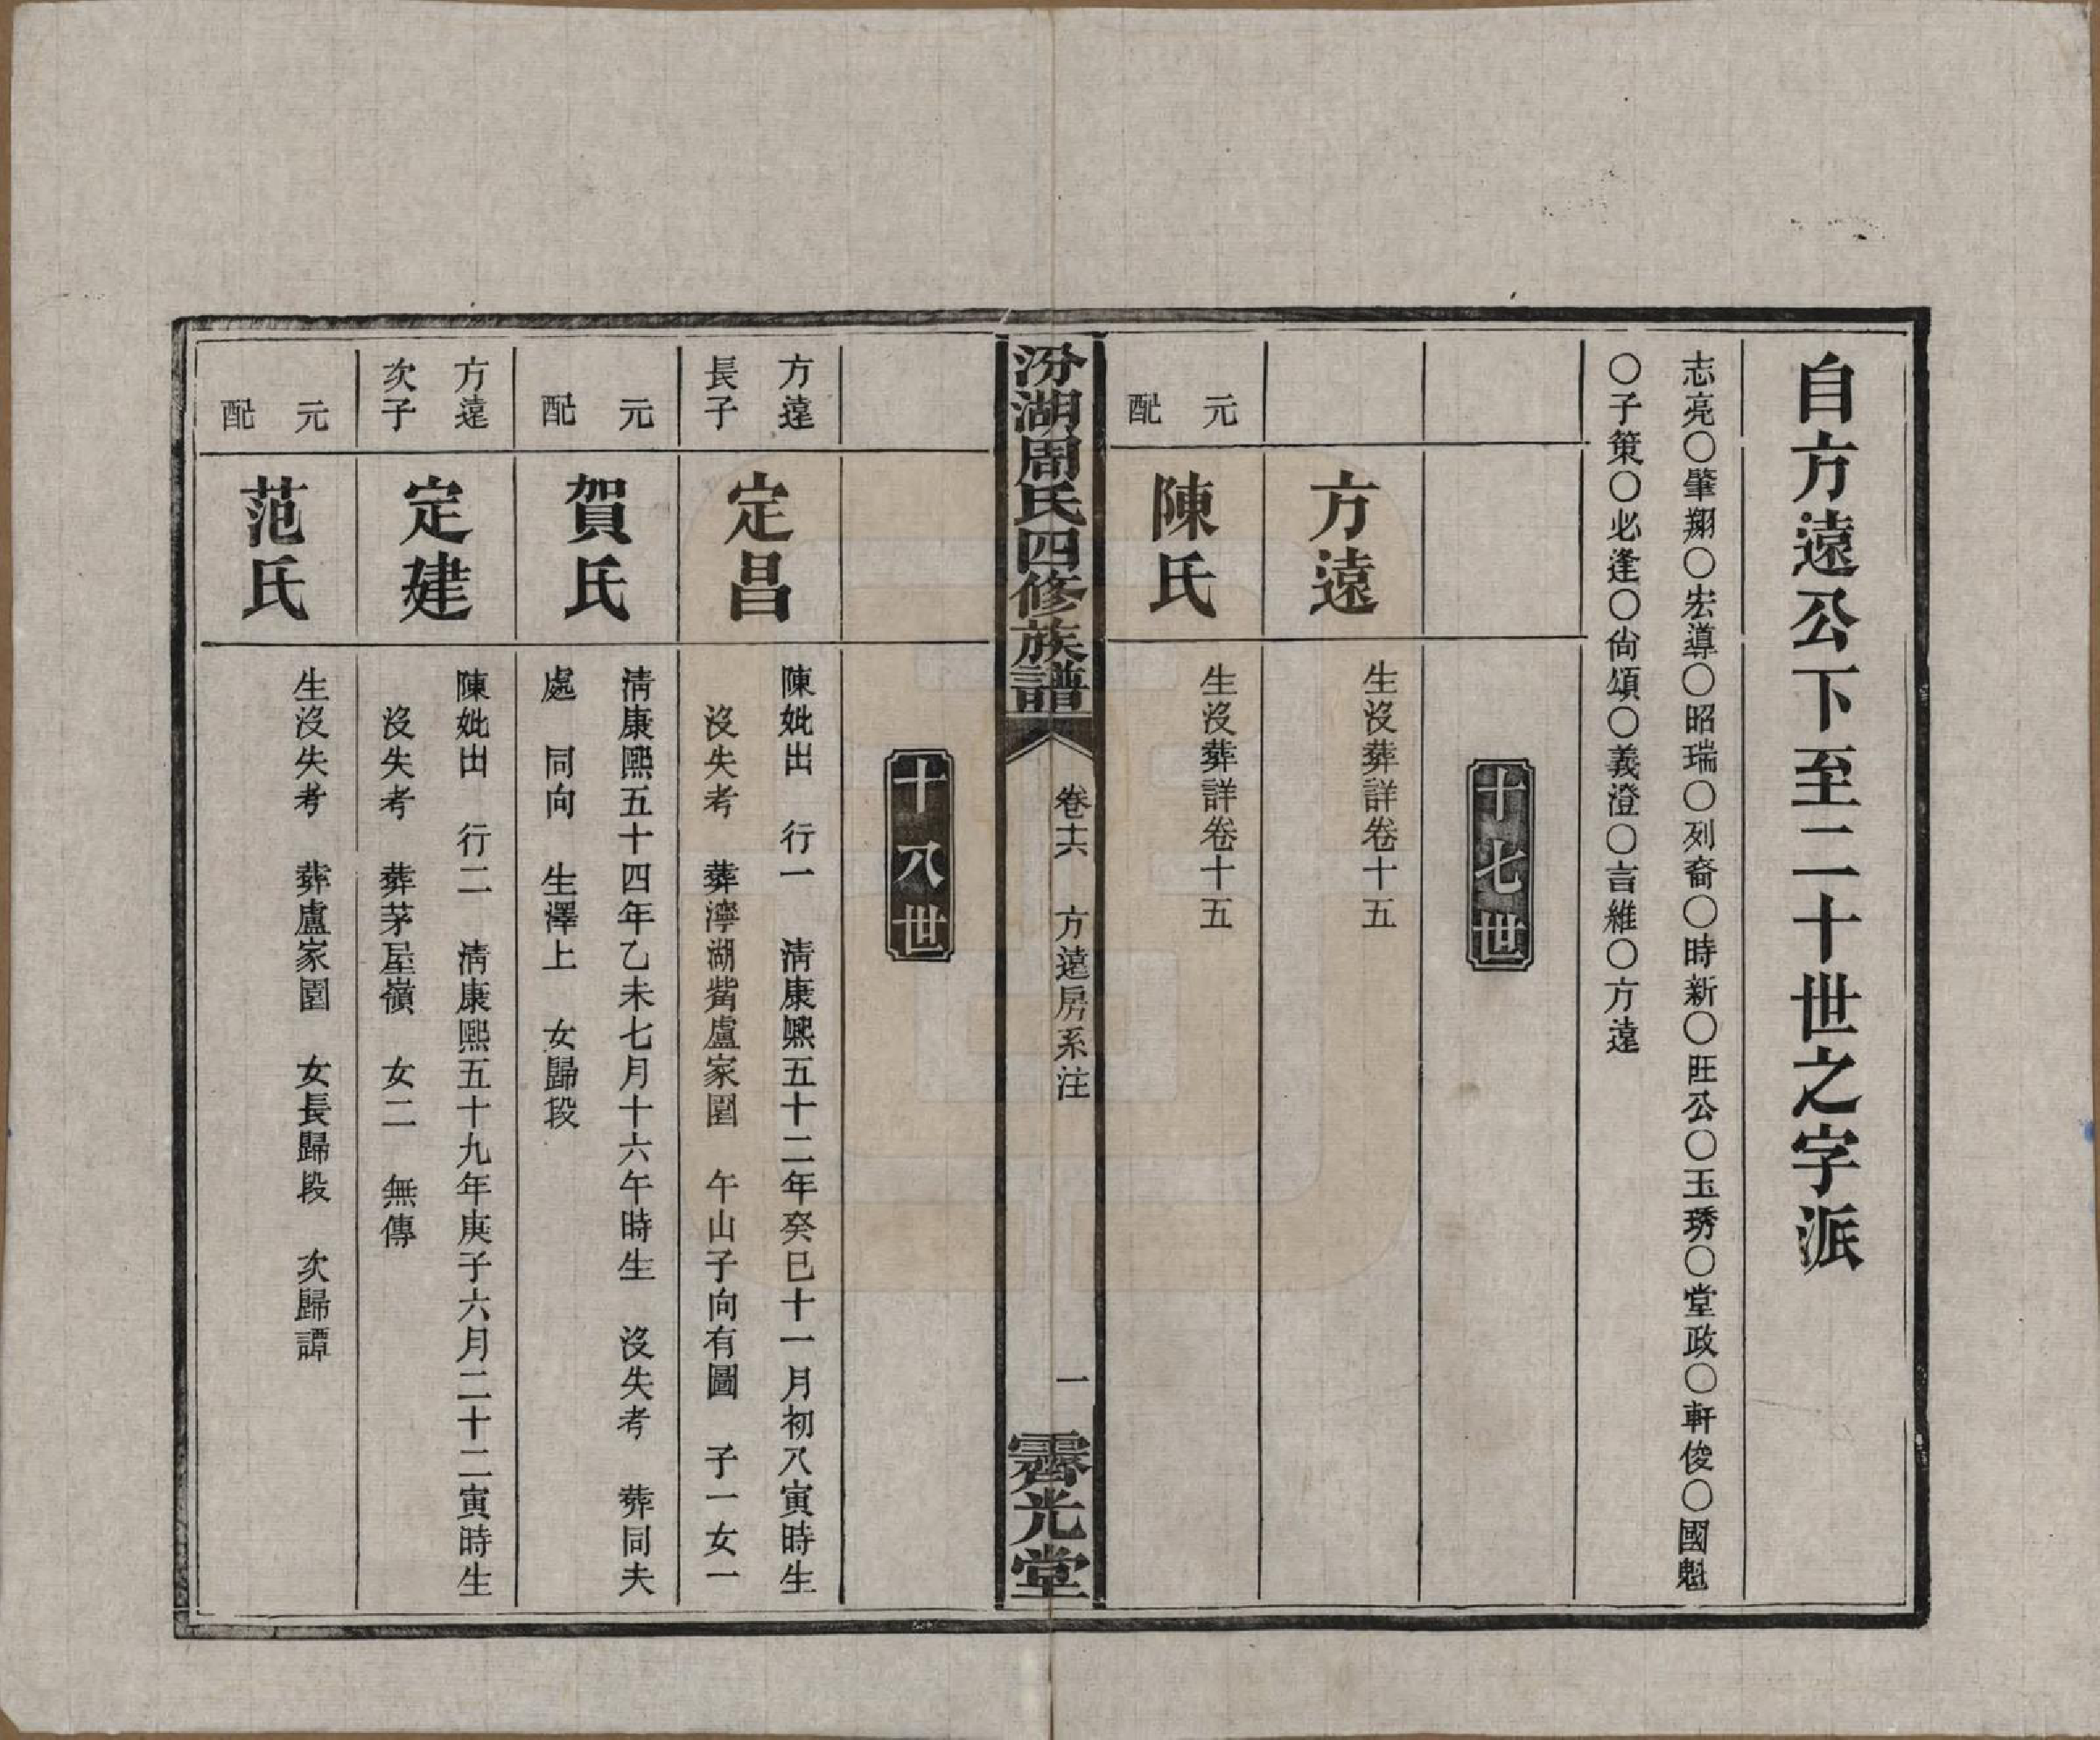 自方遠公下至二十世之字派
志亮○肇翔○宏導○昭瑞○列裔○時新○旺公○玉琇○堂政○軒俊○國魁
○子策○必逢○尙頌○義澄○言維○方遠
十七世
方遠
生沒葬詳卷十五
元配
陳氏
生沒葬詳卷十五
汾湖周氏四修族譜
卷十六
方遠房系注
一
霽光堂
十八世
方遠
長子
定昌
陳妣出 行一 淸康熙五十二年癸巳十一月初八寅時生
沒失考 葬濘湖觜盧家園 午山子向有圖 子一女一
元配
賀氏
淸康熙五十四年乙未七月十六午時生 沒失考 葬同夫
處 同向 生澤上 女歸段
方遠
次子
定建
陳妣出 行二 淸康熙五十九年庚子六月二十二寅時生
沒失考 葬茅屋嶺 女二 無傳
元配
范氏
生沒失考 葬盧家園 女長歸段 次歸譚